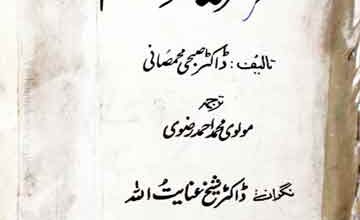 تالیف: ڈاکٹر صبحی محمصانی
ترجمہ
مولوی محمد احمد رضوی
نگران: ڈاکٹر شیخ عنایت اللہ